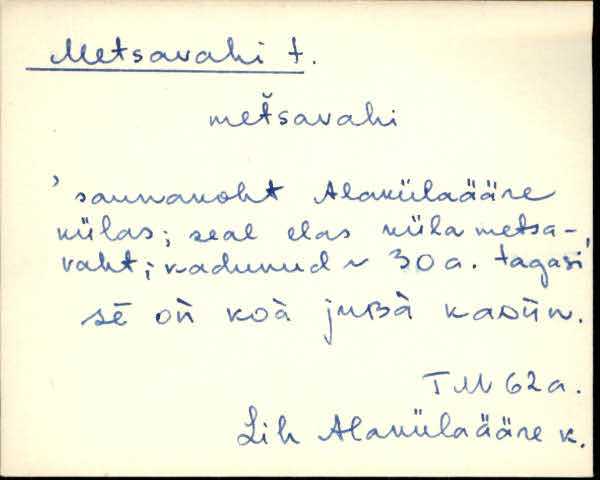 Metsavahi t.
metšavahi
’saunakoht Alakülaääre
külas; seal elas küla metsa-
vaht; kadunud ~ 30 a. tagasi’
sē oǹ koà jusà kaoùn.
TM 62 a.
Lih Alakülaääre k.